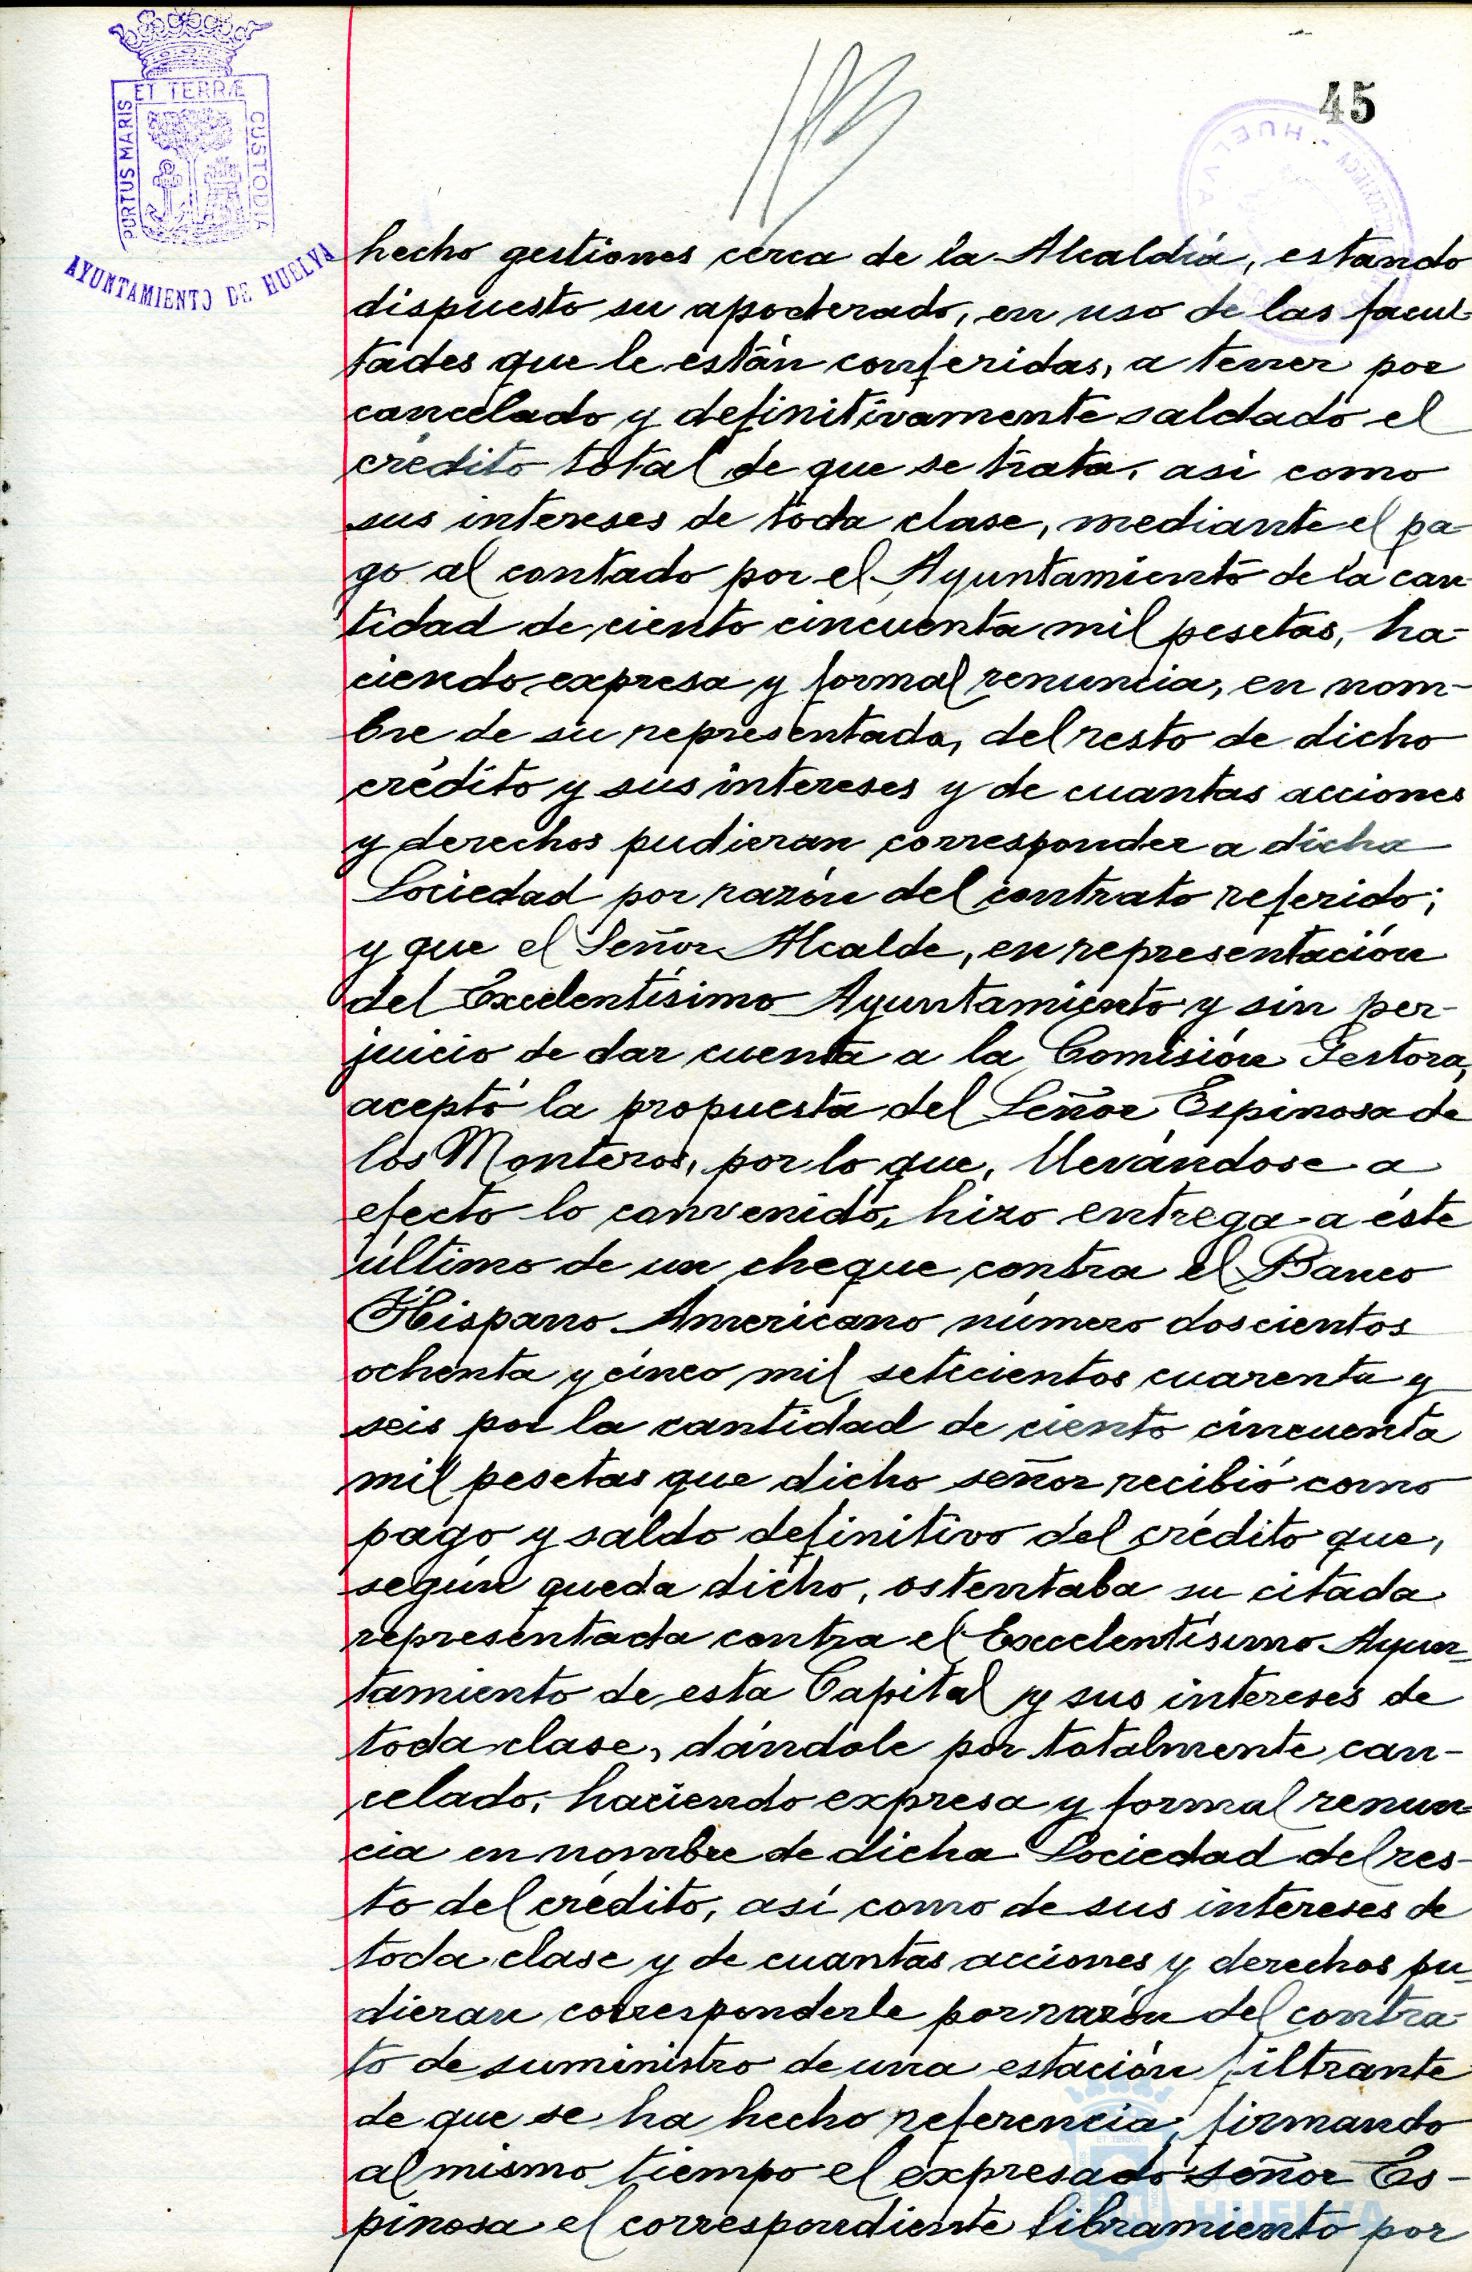 ET TERRÆ
PORTUS MARIS
CUSTODIA
AYUNTAMIENTO DE HUELVA
45
HUELVA
hecho gestiones cerca de la Alcaldía, estando
dispuesto su apoderado, en uso de las facul-
tades que le están conferidas, a tener por
cancelado y definitivamente saldado el
crédito total de que se trata, asi como
sus intereses de toda clase, mediante el pa-
go al contado por el Ayuntamiento de la can-
tidad de ciento cincuenta mil pesetas, ha-
ciendo expresa y formal renuncia, en nom-
bre de su representada, del resto de dicho
crédito y sus intereses y de cuantas acciones
y derechos pudieran corresponder a dicha
Sociedad por razón del contrato referido;
y que el Señor Alcalde, en representación
del Excelentísimo Ayuntamiento y sin per-
juicio de dar cuenta a la Comisión Gestora,
aceptó la propuesta del Señor Espinosa de
los Monteros, por lo que, llevándose a
efecto lo convenido, hizo entrega a éste
último de un cheque contra el Banco
Hispano Americano número doscientos
ochenta y cinco mil setecientos cuarenta y
seis por la cantidad de ciento cincuenta
mil pesetas que dicho señor recibió como
pago y saldo definitivo del crédito que,
según queda dicho, ostentaba su citada
representada contra el Excelentísimo Ayun-
tamiento de esta Capital y sus intereses de
toda clase, dándole por totalmente can-
celado, haciendo expresa y formal renun-
cia en nombre de dicha Sociedad del res-
to del crédito, así como de sus intereses de
toda clase y de cuantas acciones y derechos pu-
dieran corresponderle por razón del contra-
to de suministro de una estación filtrante
de que se ha hecho referencia, firmando
al mismo tiempo el expresado señor Es-
pinosa el correspondiente libramiento por
HUELVA